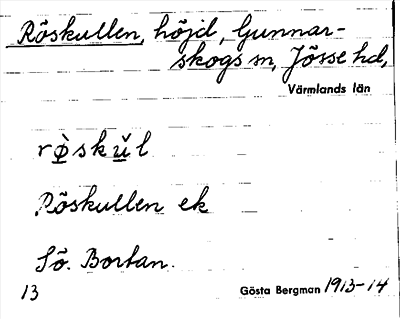 Röskullen, höjd, Gunnar-
skogs sn, Jösse hd,
Värmlands län
rö̀skŭl
Röskullen ek
Sö. Bortan.
13 Gösta Bergman 1913-14